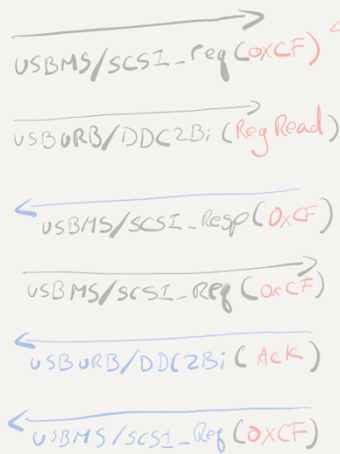 USBMS/SCSI_req(0xCF)
USBURB/DDC2Bi(Reg Read)
USBMS/SCSI_Resp(0xCF)
USBMS/SCSI_Req(0xCF)
USBURB/DDC2Bi(Ack)
USBMS/SCSI_Req(0XCF)